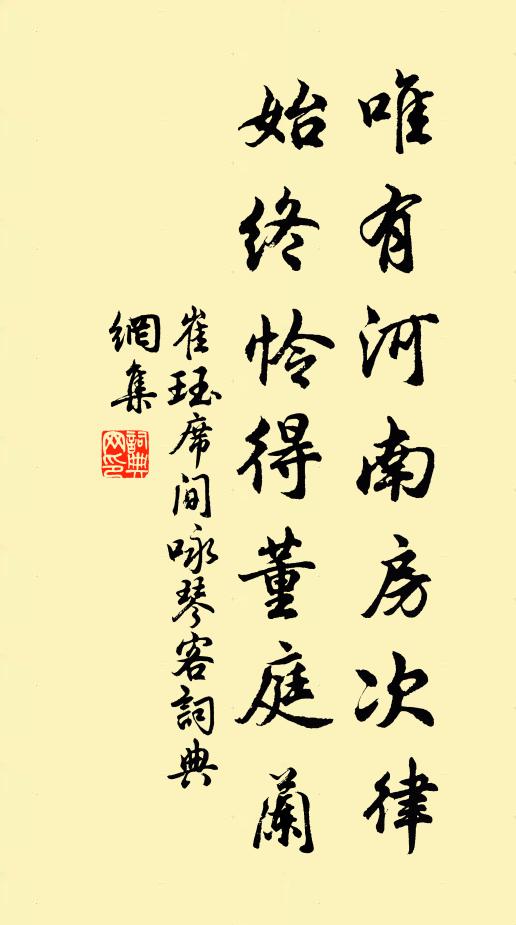 唯有河南房次律
始終怜得董庭蘭
崔珏席间咏琴客詞典
網集
詞典网印